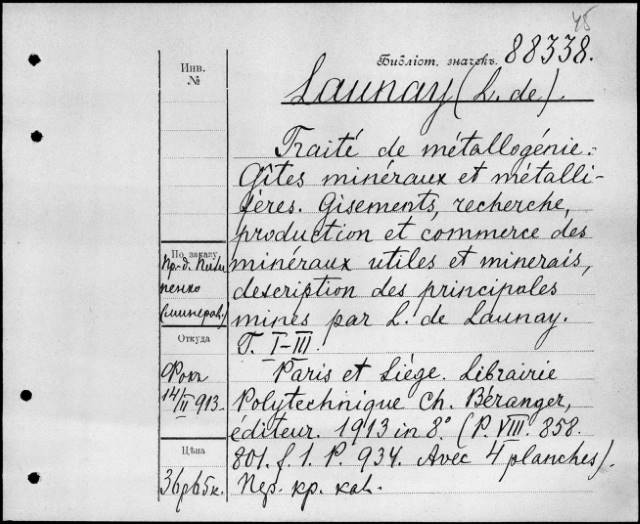 45
Библіот. значекъ. 88338.
Инв.
№
Launay (L. de).
Traité de métallogénie.
Gîtes minéraux et métalli-
fères. Gisements, recherche,
production et commerce des
minéraux utiles et minerais,
description des principales
mines par L. de Launay.
T. I-III.
Paris et Liége. Librairie
Polytechnique Ch. Béranger,
éditeur. 1913 in 8º. (P. VIII. 858.
801. f. 1. P. 934. Avec 4 planches).
Пер. кр. кал.
По заказу
Пр-д. Пили
пенко
(минерал.)
Откуда
Фокъ
14/II 913.
Цѣна
36р65к.